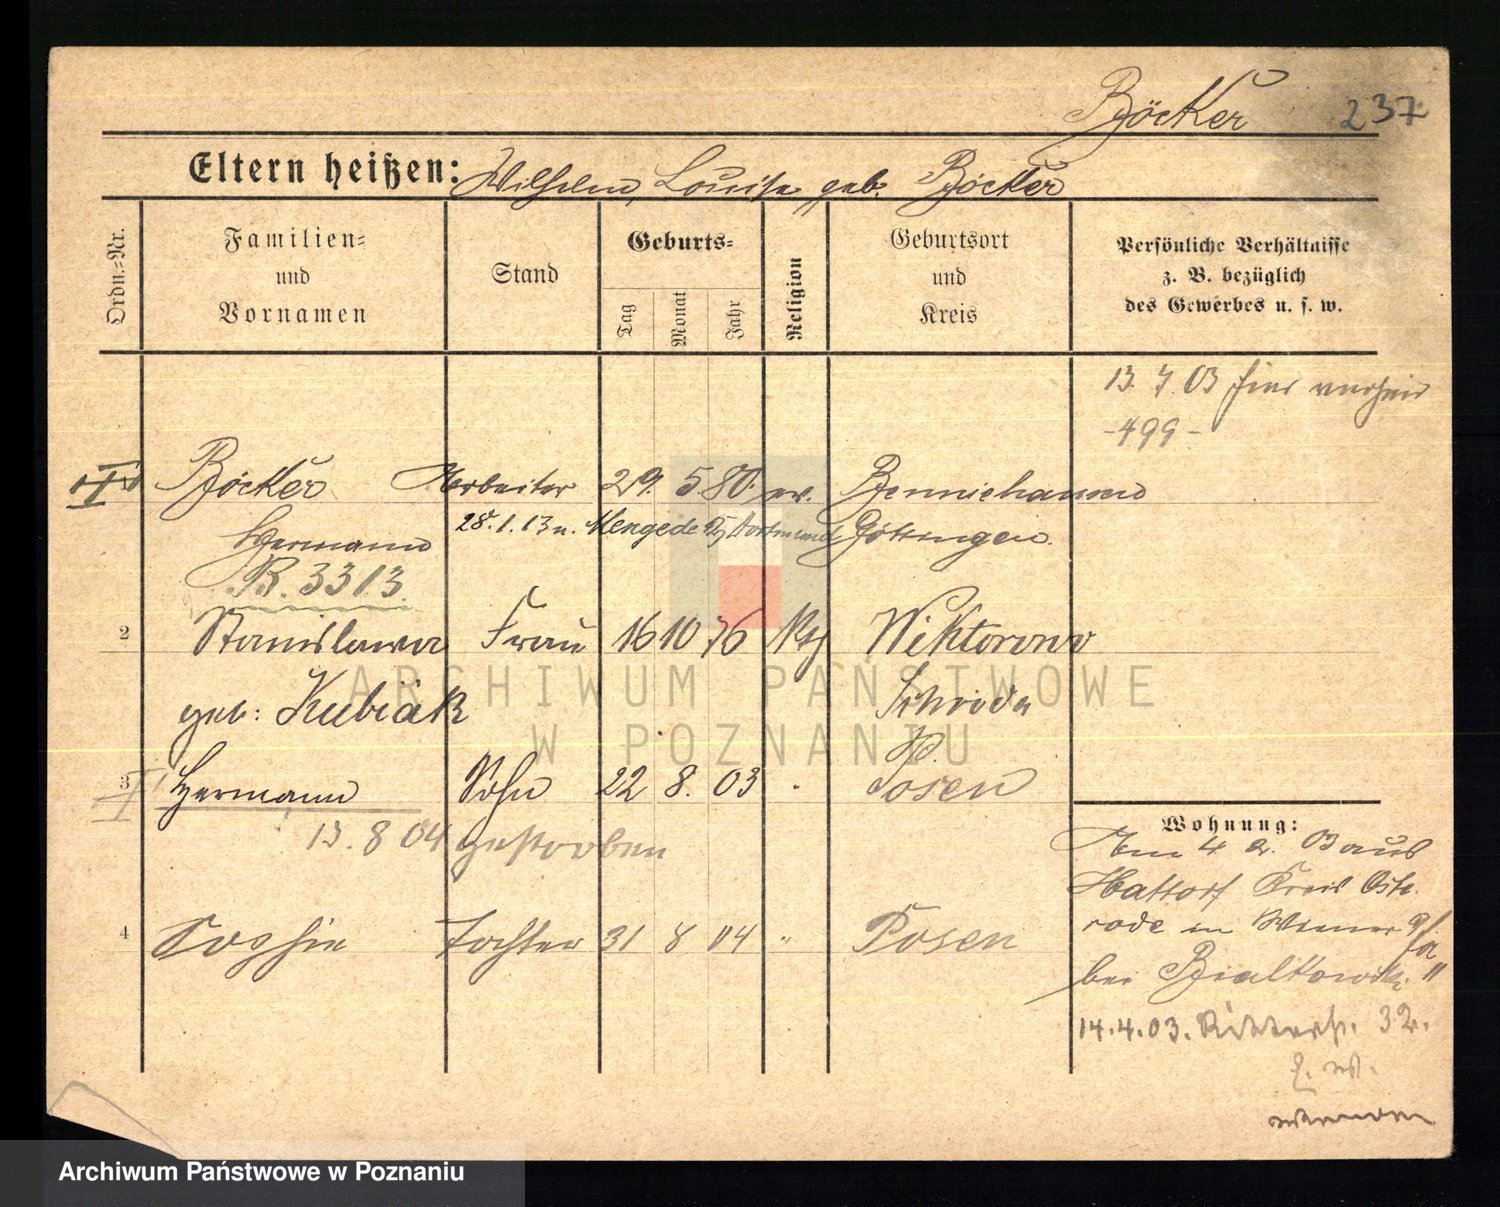 Böcker 237
Eltern heißen: Wilhelm, Louise geb. Böcker
Ordn.-Nr.
Familien-
und
Vornamen
Stand
Geburts-
Tag
Monat
Jahr
Religion
Geburtsort
und
Kreis
Persönliche Verhältnisse
z. B. bezüglich
des Gewerbes u. s. w.
13. 7 03 hier
-499-
Böcker Arbeiter 29. 5. 80. ev. Benniehausen
Hermann 28.1.13 n. Mengede Dortmund Göttingen
R. 3313.
2 Stanislawa Frau 16 10 76 kth Wiktorowo
geb: Kubiak Schroda
ARCHIWUM PAŃSTWOWE
W POZNANIU
3 Hermann Sohn 22 8. 03 Posen
13. 8 04 gestorben
4 Sophie Tochter 31 8 04 " Posen
Wohnung:
Am 4 2. 03 aus
Hattorf Kreis Oste
rode in
bei Bialkowski
14.4.03. Ritterst. 32.
wenden
Archiwum Państwowe w Poznaniu